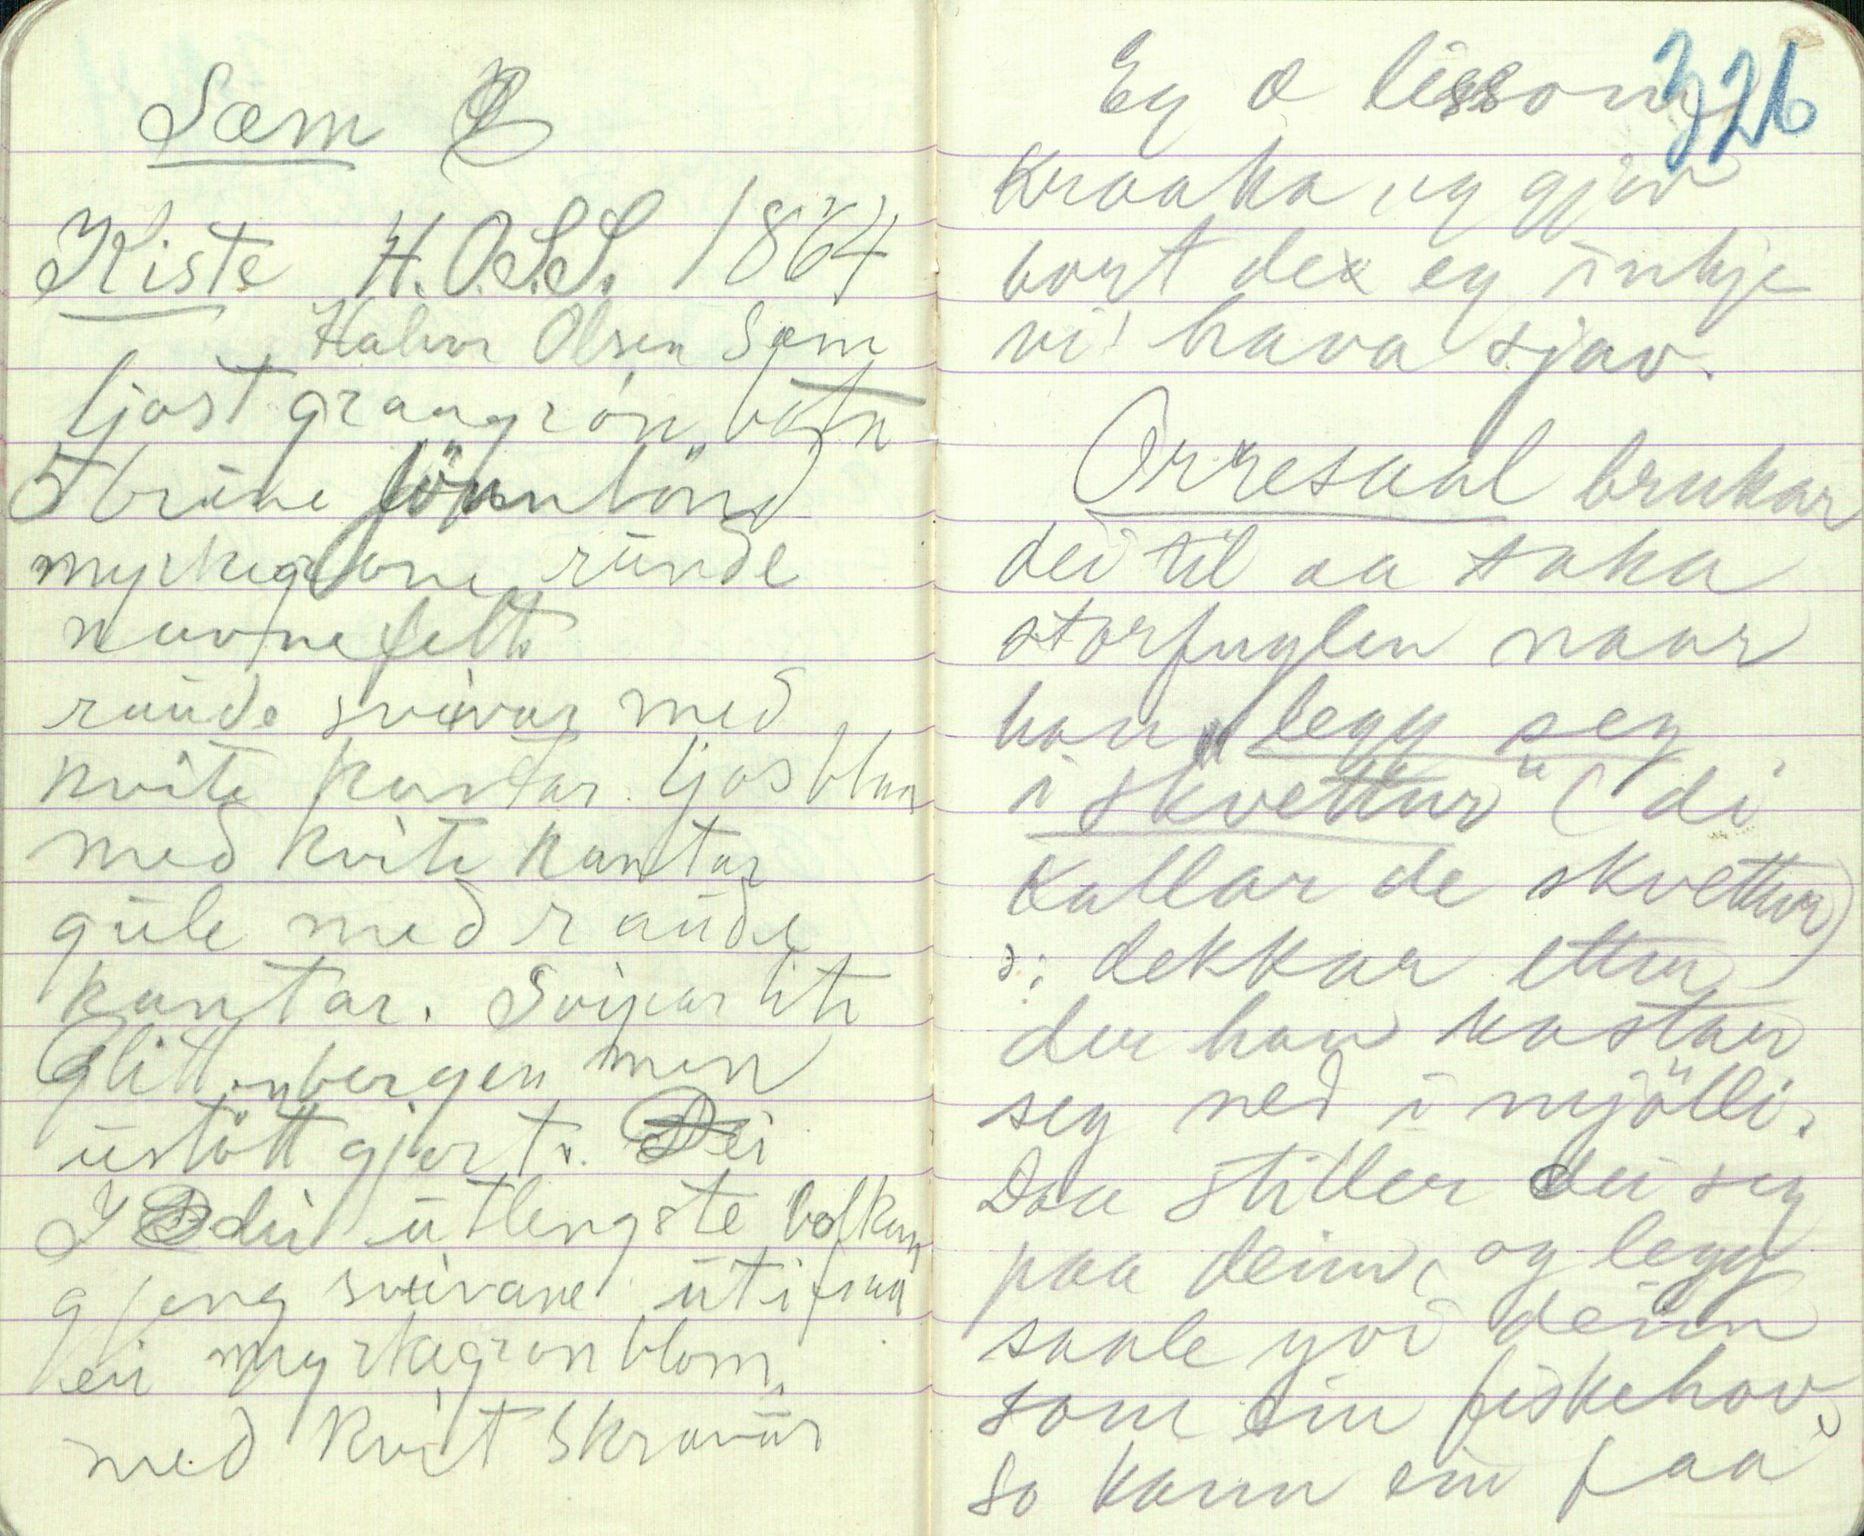 Sæm
Kiste H.O.S.S. 1864
Halvor Olsen Sæm
ljost graagrøn botn
5 brune jönnbönd
myrkegrøne, runde
navnefelt.
raude svivar med
kvite kantar. ljosblaa
med kvite kantar
gule med raude
kantar. Svipar litt
Glittenbergen men
ustött gjort.. Dei
I dei utlengste bolkan
gjeng sveivane utifraa
ein myrkegrøn blom,
med kvit skravur
326
Eg æ lissom
Kraaka, eg gjev
bort de eg inkje
vil hava sjav.
Orresaal brukar
dei til aa taka
storfuglen naar
han legg seg
i skvettur" (di
Kallar de skvettur)
ɔ: dekkar ettur
der han kastar
seg ned i mjölli.
Daa stiller dei seg
paa deim, og legg
saale yvi deim
som ein fiskehov,
so kann ein faa